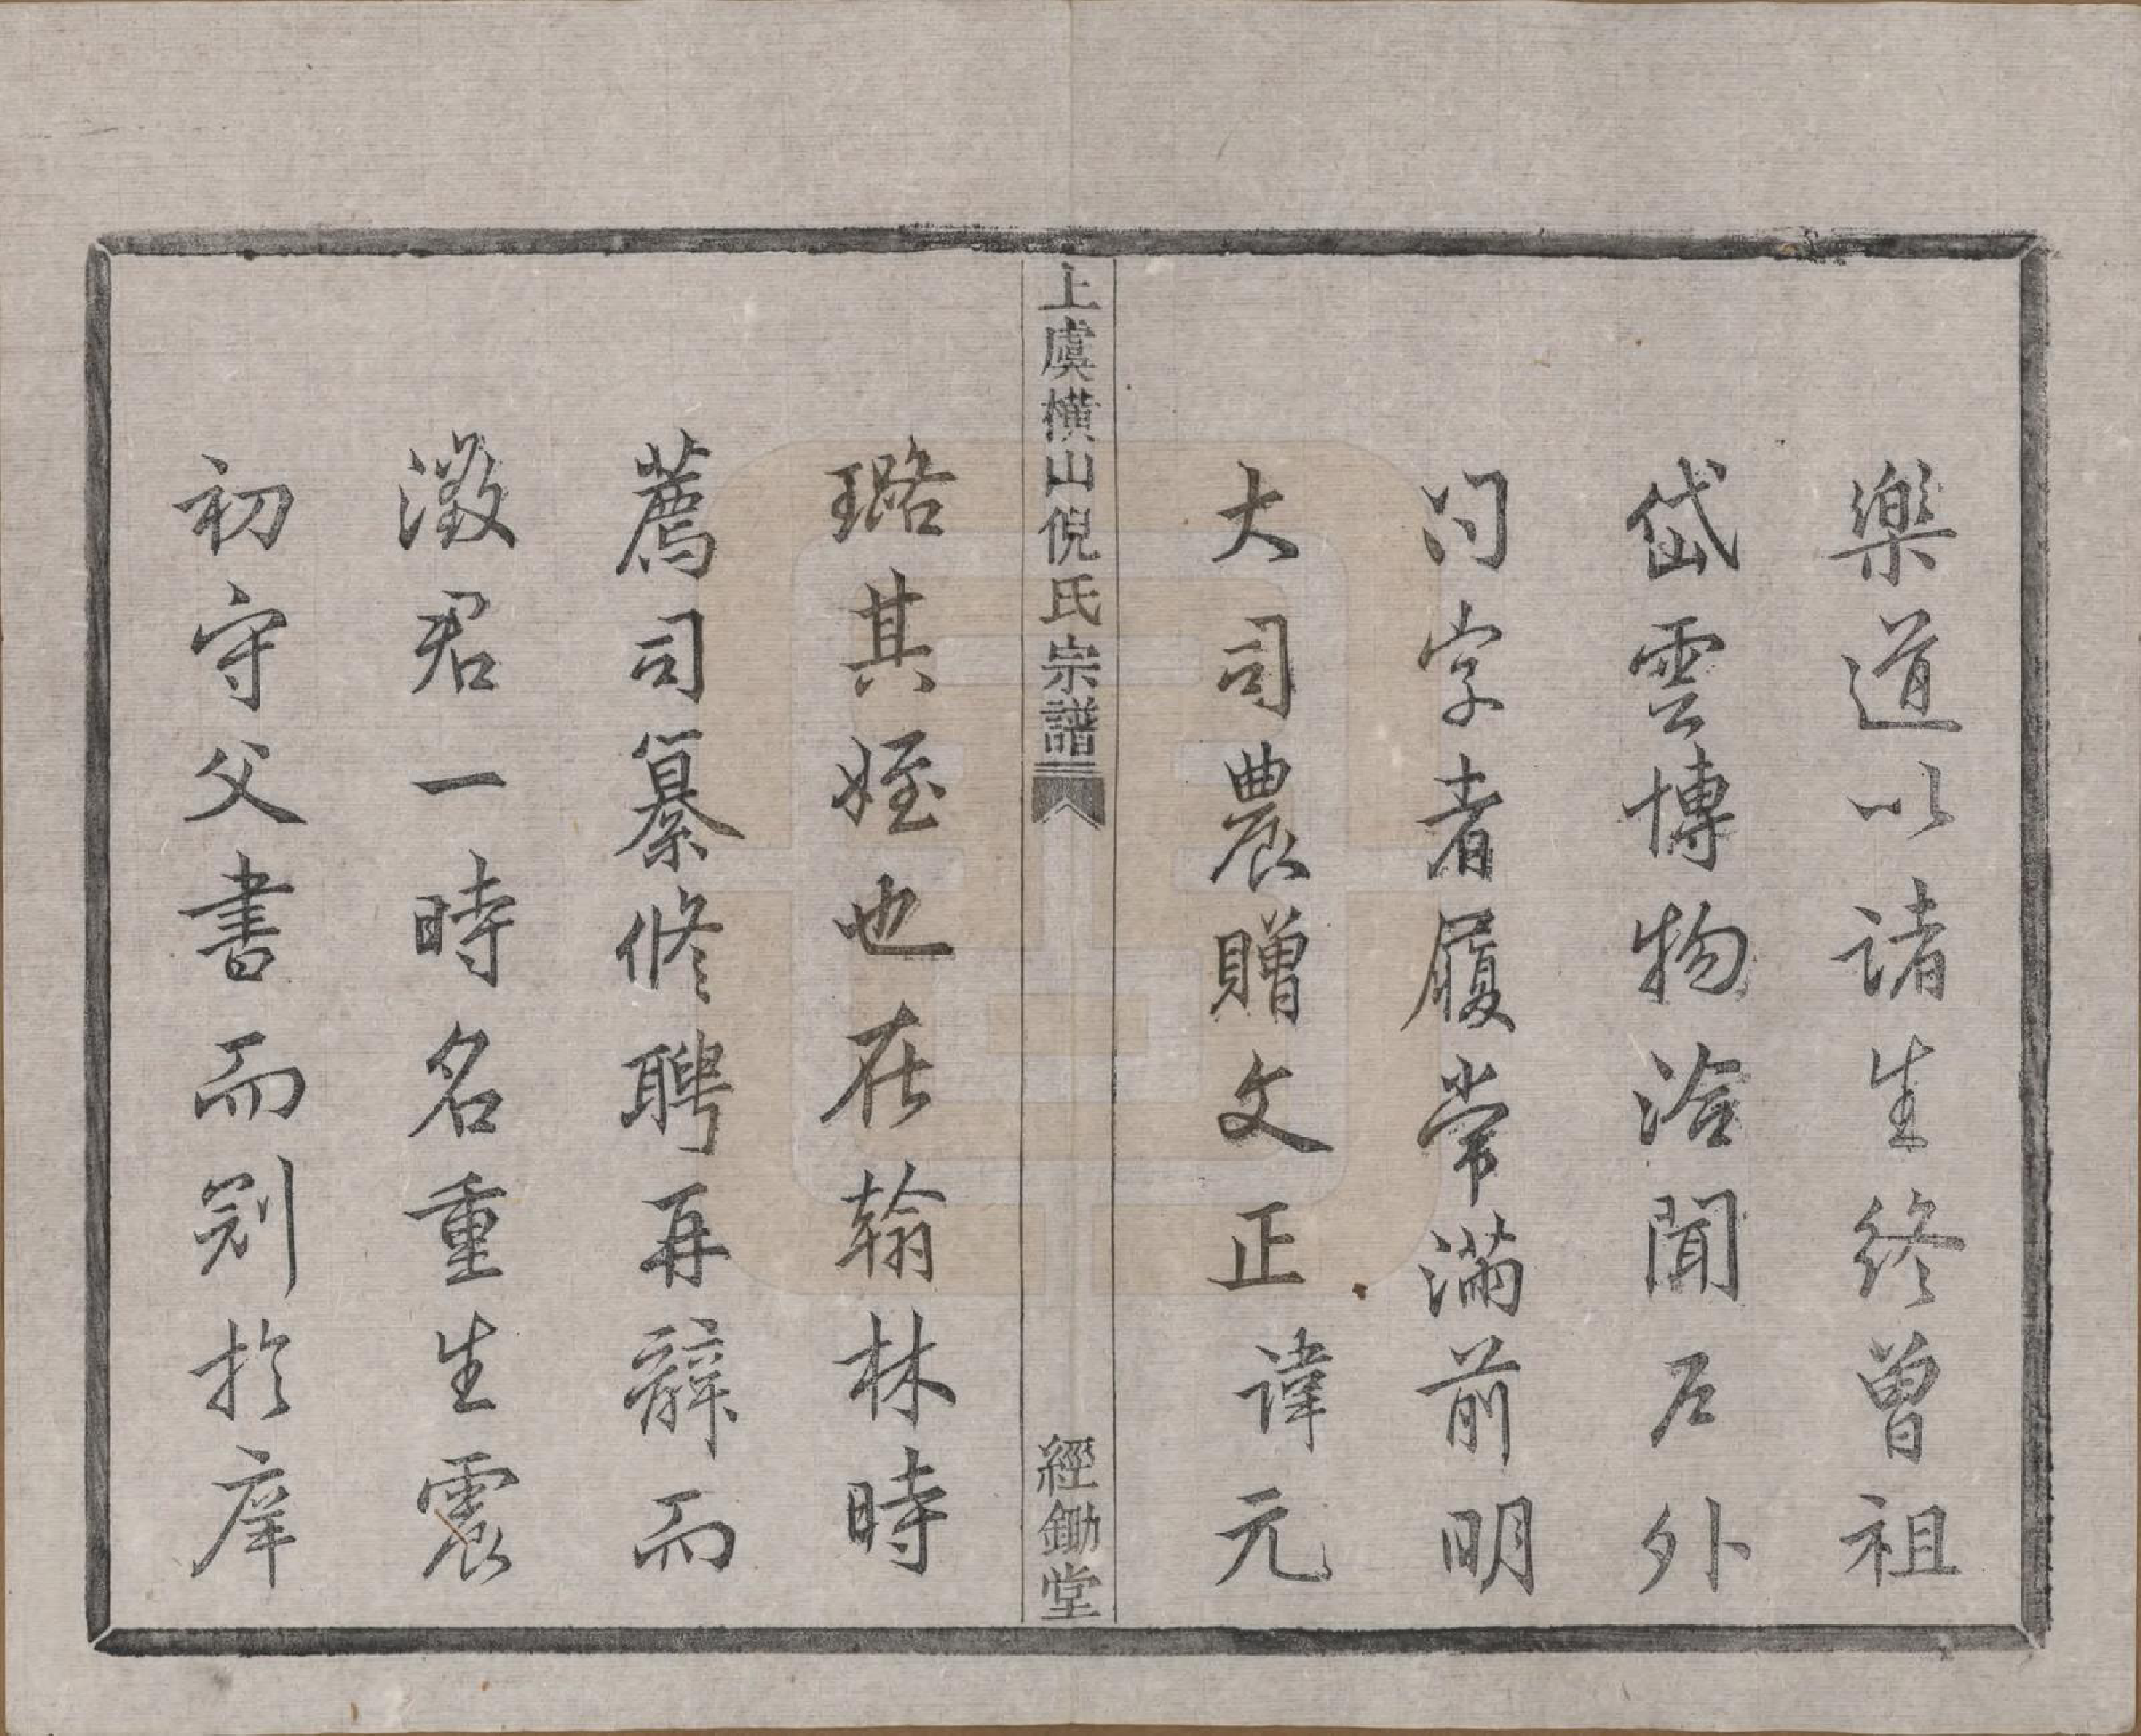 樂道以諸生終曾祖
岱雲博物洽聞户外
问字者履常滿前明
大司農贈文正諱元
上虞橫山倪氏宗譜
經鋤堂
璐其姪也在翰林時
薦司纂修聘再辭而
澂君一時名重生震
初守父書而剏於庠